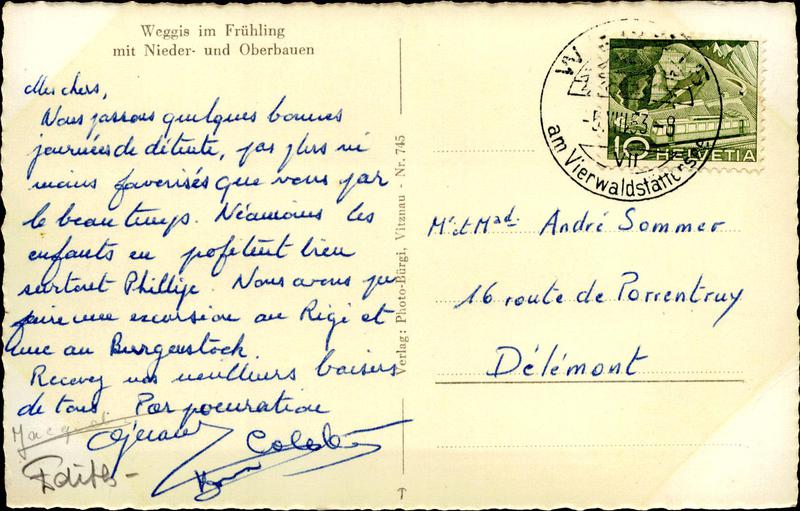 Weggis im Frühling
mit Nieder- und Oberbauen
Mes chers,
Nous passons quelques bonnes
journées de détente, pas plus ni
moins favorisés que vous par
le beau temps. Néamoins les
enfants en pofitent bien
surtout Phillipe. Nous avons pu
faire une excursion au Rigi et
une au Burgenstock.
Recevez nos meilleurs baisers
de tous Par pocuration
Jacquot
Edith
Verlag: Photo-Bürgi, Vitznau - Nr. 745
-5.VIII.53-8
VII
am Vierwaldstättersee
10 HELVETIA
Mr et Mad. André Sommer
16 route de Porrentruy
Délémont